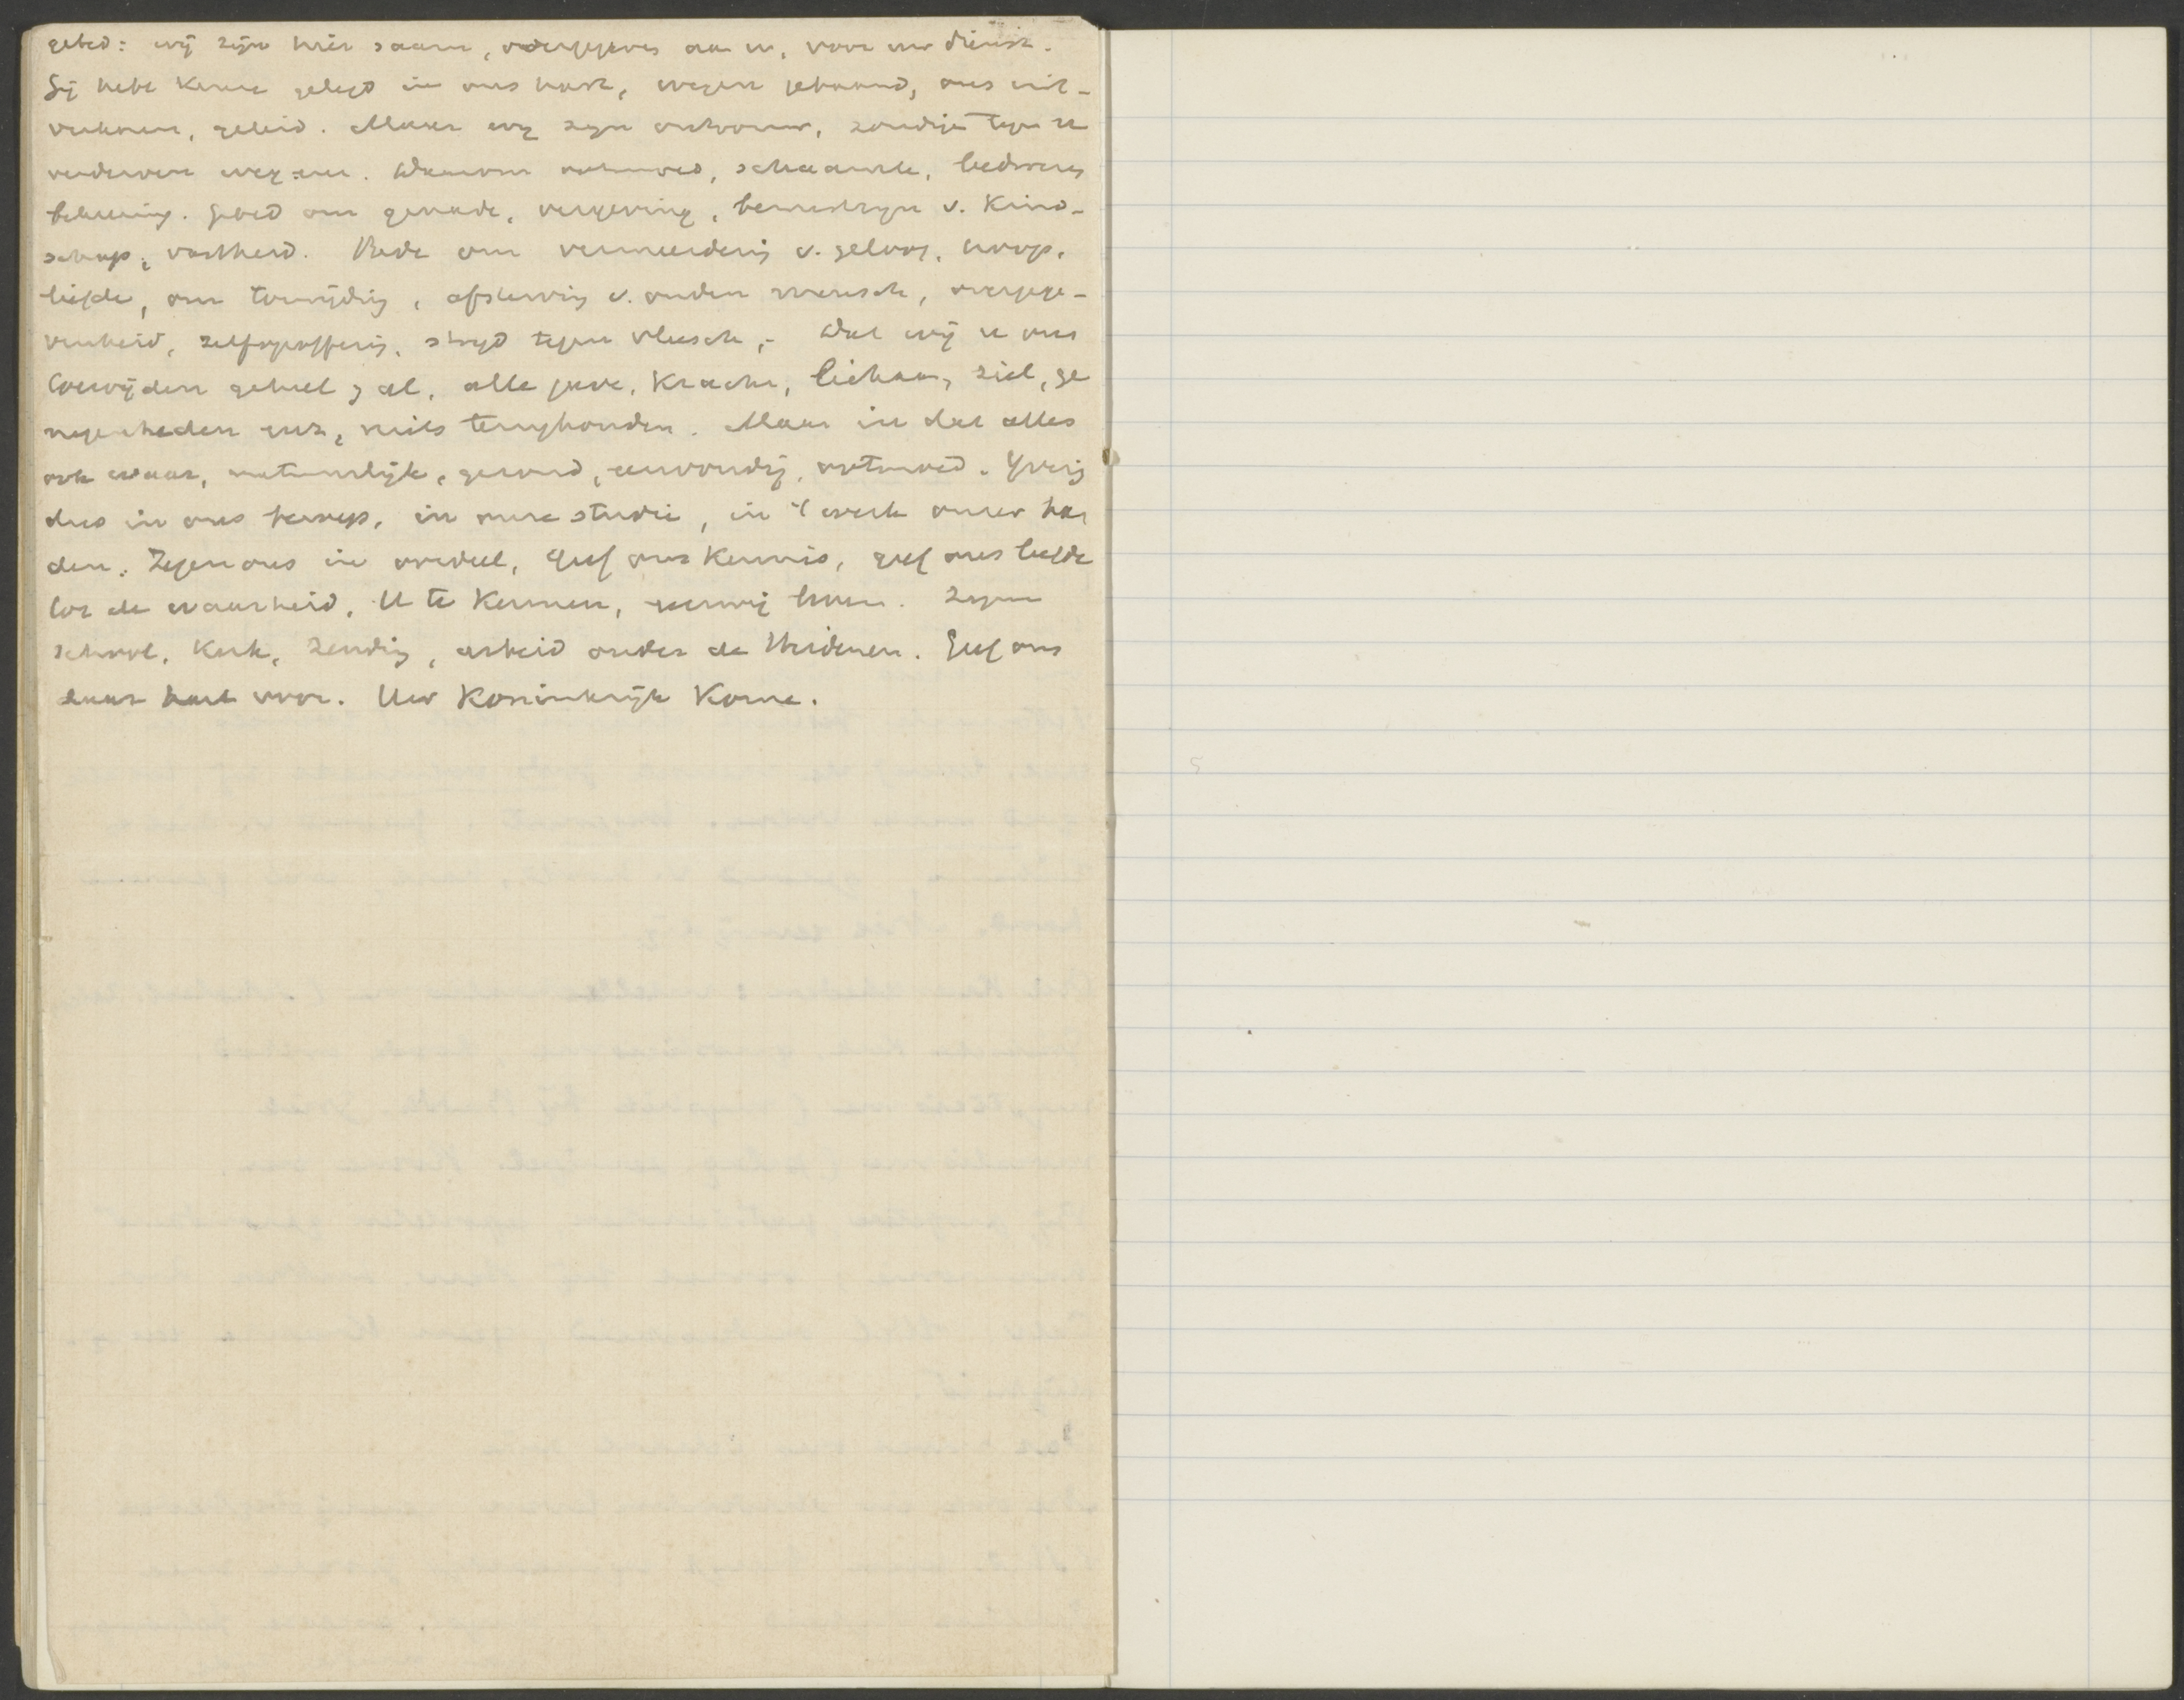 gebed: wij zijn hier saam, overgegeven aan u, voor uw dienst.
Gij hebt kennis gelegd in ons hart, wegen gebaand, ons uit-
verkoren, geleid. Maar wij zijn ontrouw, zondige tegen u
verderven wegzen. Daarom ootmoed, schaamte, leedwezen
bekeering. Gebed om genade, vergeving, bewustzijn v. kind-
schap, vastheid. Bede om vermeerdering v. geloof, hoop,
liefde, om toewijding, afsterving v. ouden mensch, overgege-
venheid, zelfopoffering, strijd tegen vleesch, - dat wij u ons
toewijden geheel & al, alle gave, kracht, lichaam, ziel, ge
negenheden enz, niets terughouden. Maar in dat alles
ook waar, natuurlijk, gezond, eenvoudig, ootmoed. Yverig
dus in ons beroep, in onze studie, in 't werk onzer han
den. Zegen ons in oordeel, geef ons kennis, geef ons liefde
tot de waarheid, U te kennen, eeuwig leven. Zegen
school, kerk, zending, arbeid onder de Heidenen. Geef ons
daar hart voor. Uw Koninkrijk Kome.